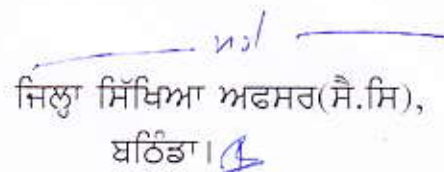 ਜਿਲ੍ਹਾ ਸਿੱਖਿਆ ਅਫਸਰ(ਸੈ.ਸਿ),
ਬਠਿੰਡਾ।